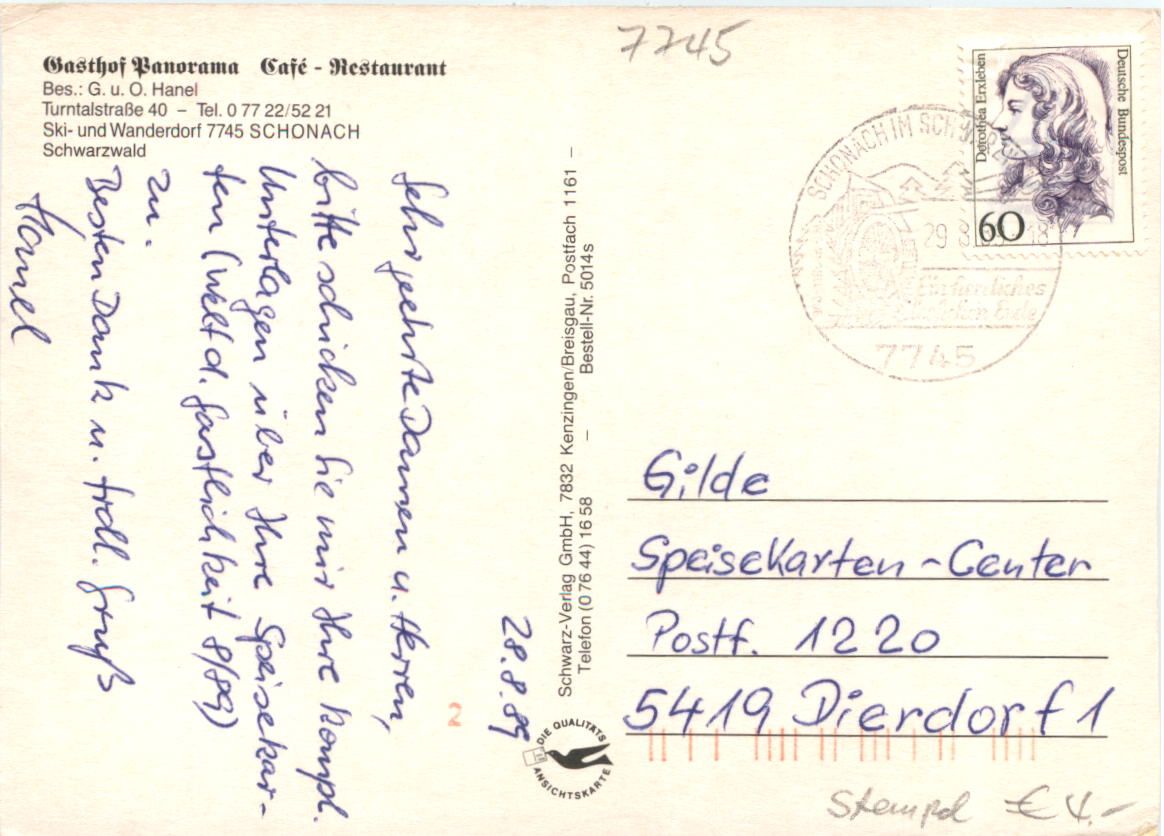 Gasthof Panorama Café - Restaurant
Bes.: G. u. O. Hanel
Turntalstraße 40 – Tel. 0 77 22/52 21
Ski- und Wanderdorf 7745 SCHONACH
Schwarzwald
28.8.89
Sehr geehrte Damen u. Herren,
bitte schicken Sie mir Ihre kompl.
Unterlagen über Ihre Speisekar-
ten (Welt d. Gastlichkeit 8/89)
zu.
Besten Dank u. frdl. Gruß
Hanel
Schwarz-Verlag GmbH, 7832 Kenzingen/Breisgau, Postfach 1161 –
Telefon (0 76 44) 16 58 – Bestell-Nr. 5014s
DIE QUALITÄTS
ANSICHTSKARTE
2
7745
Dorothea Erxleben
Deutsche Bundespost
60
SCHONACH IM SCHWARZW
29.8. 18
7745
Gilde
Speisekarten-Center
Postf. 1220
5419 Dierdorf 1
Stempel € 4.-